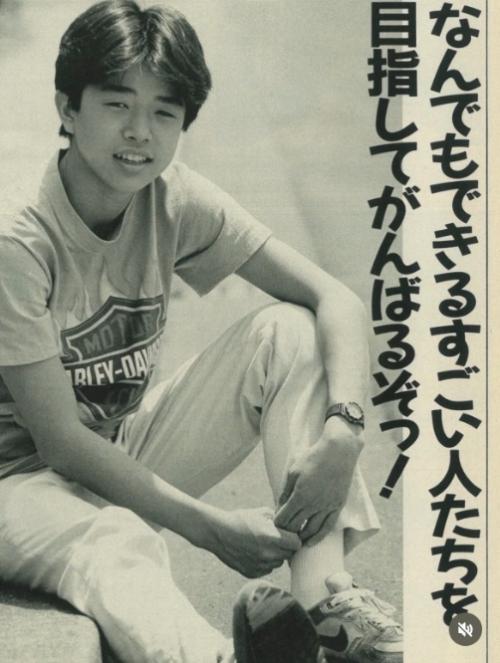 なんでもできるすごい人たちを
目指してがんばるぞっ!
MOTOR
ARLEY-DAV